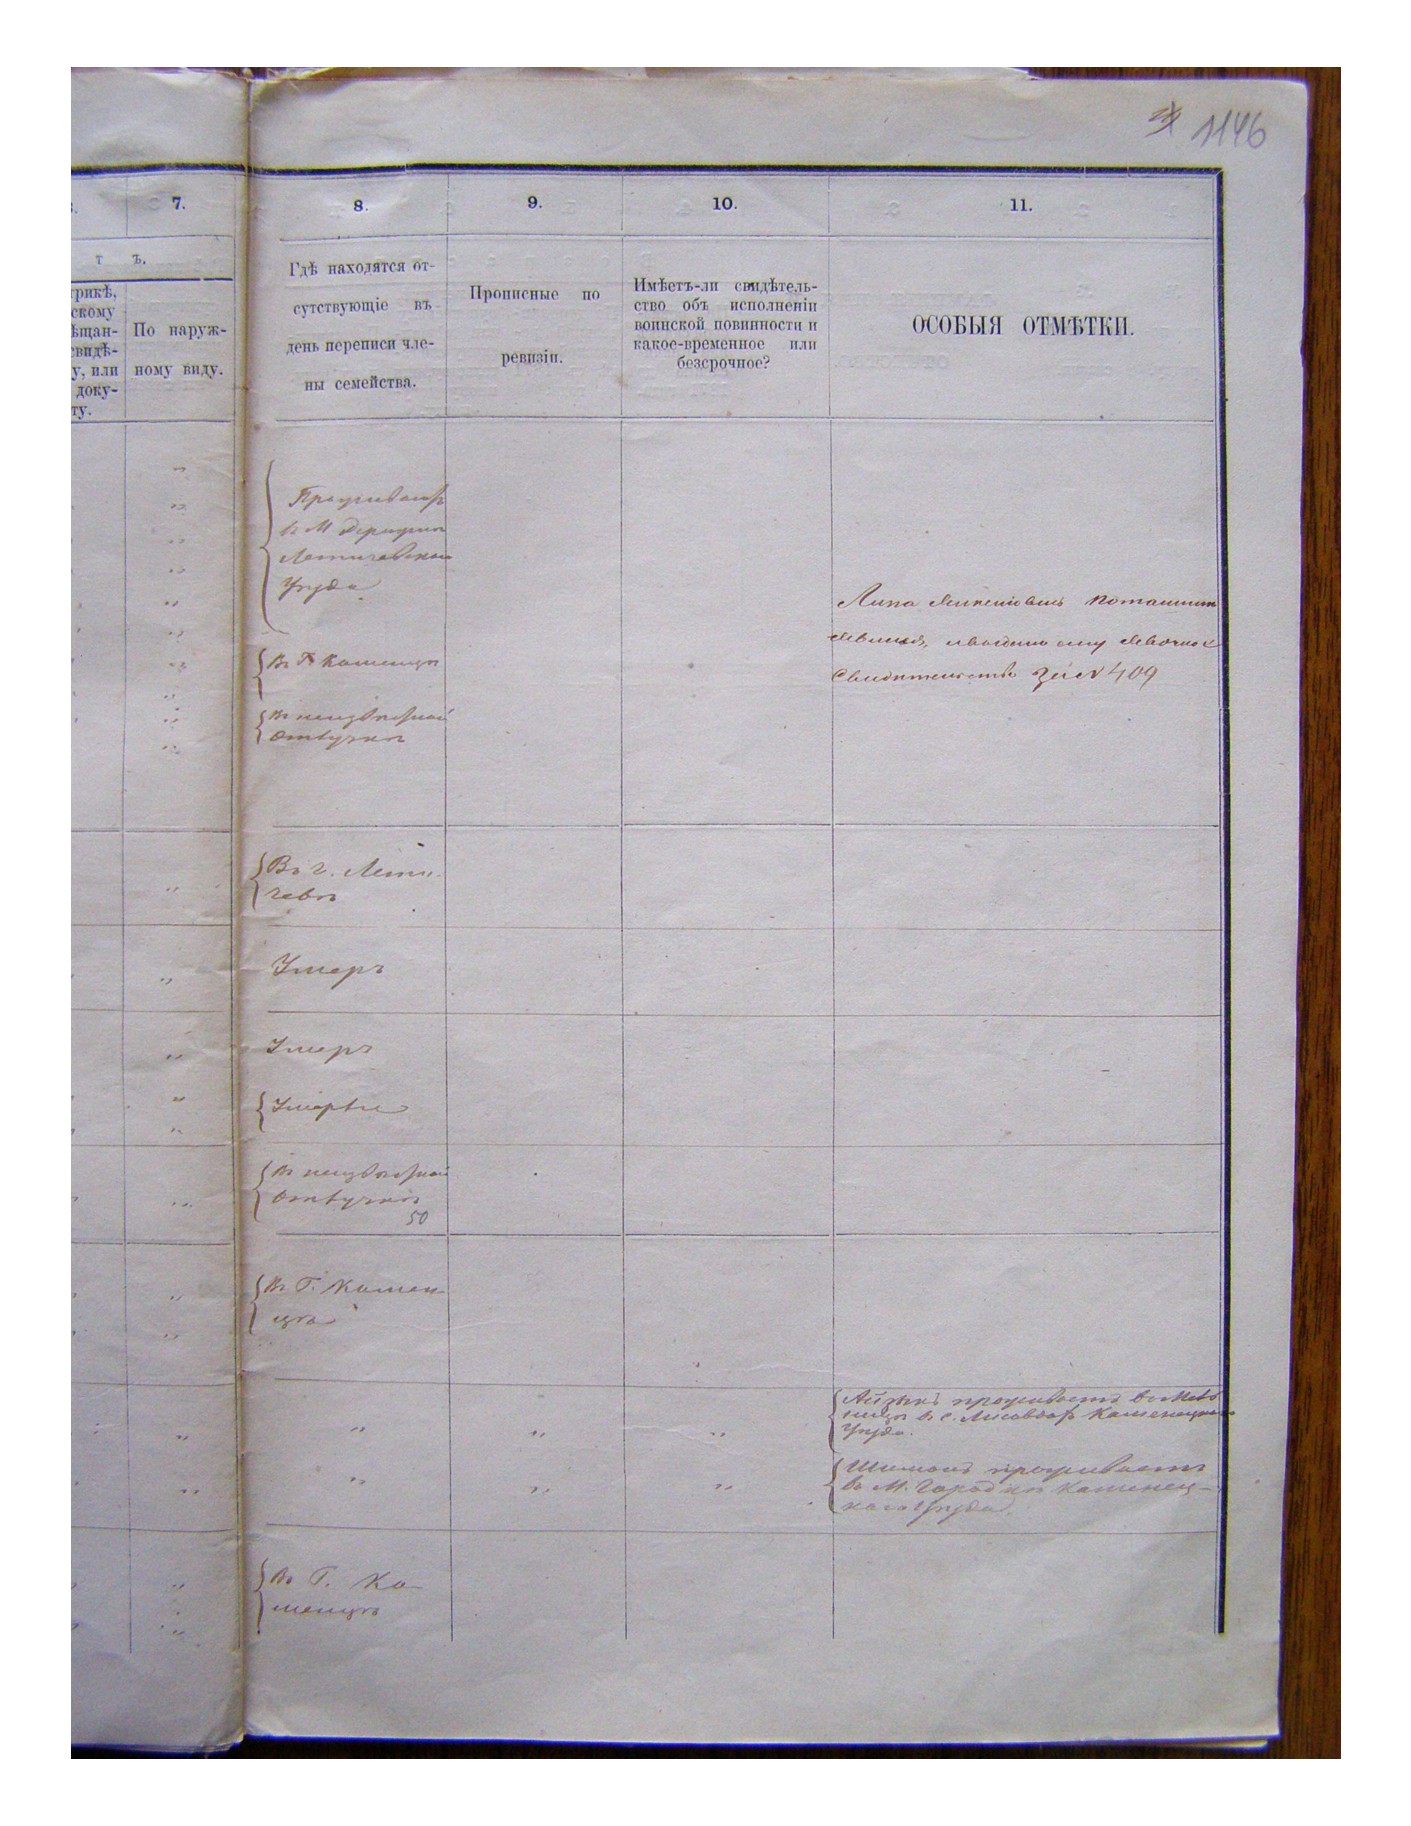 1146
7.
8.
9.
10.
11.
т ъ.
трикѣ,
скому
ѣщан-
свидѣ-
у, или
доку-
ту.
По наруж-
ному виду.
Гдѣ находятся от-
сутствующіе въ
день переписи чле-
ны семейства.
Прописные по
ревизіи.
Имѣетъ-ли свидѣтель-
ство объ исполненіи
воинской повинности и
какое-временное или
безсрочное?
ОСОБЫЯ ОТМѢТКИ.
„
„
„
„
„
„
„
„
„
„
Проживаютъ
въ М Деражнѣ
Летичевскаго
Уѣзда
Липа
Свидѣтельство за № 409
Въ Г Каменцѣ
въ неизвѣстной
отлучкѣ
Въ г. Лети-
чевѣ
„
Умеръ
„
Умеръ
„
Умерли
„
„
въ неизвѣстной
отлучкѣ
50
„
Въ Г. Камен-
цѣ
„
„
Айзикъ проживаетъ
въ с. Каменецкаго
Уѣзда.
„ „ „ „
Шимонъ проживаетъ
въ М. Городкѣ Каменец-
каго Уѣзда.
„ „ „ „
Въ Г. Ка-
менцѣ
„
„